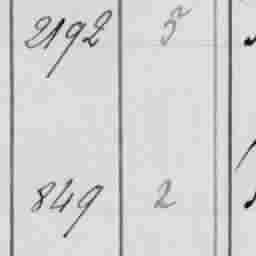 2192 5
849 2